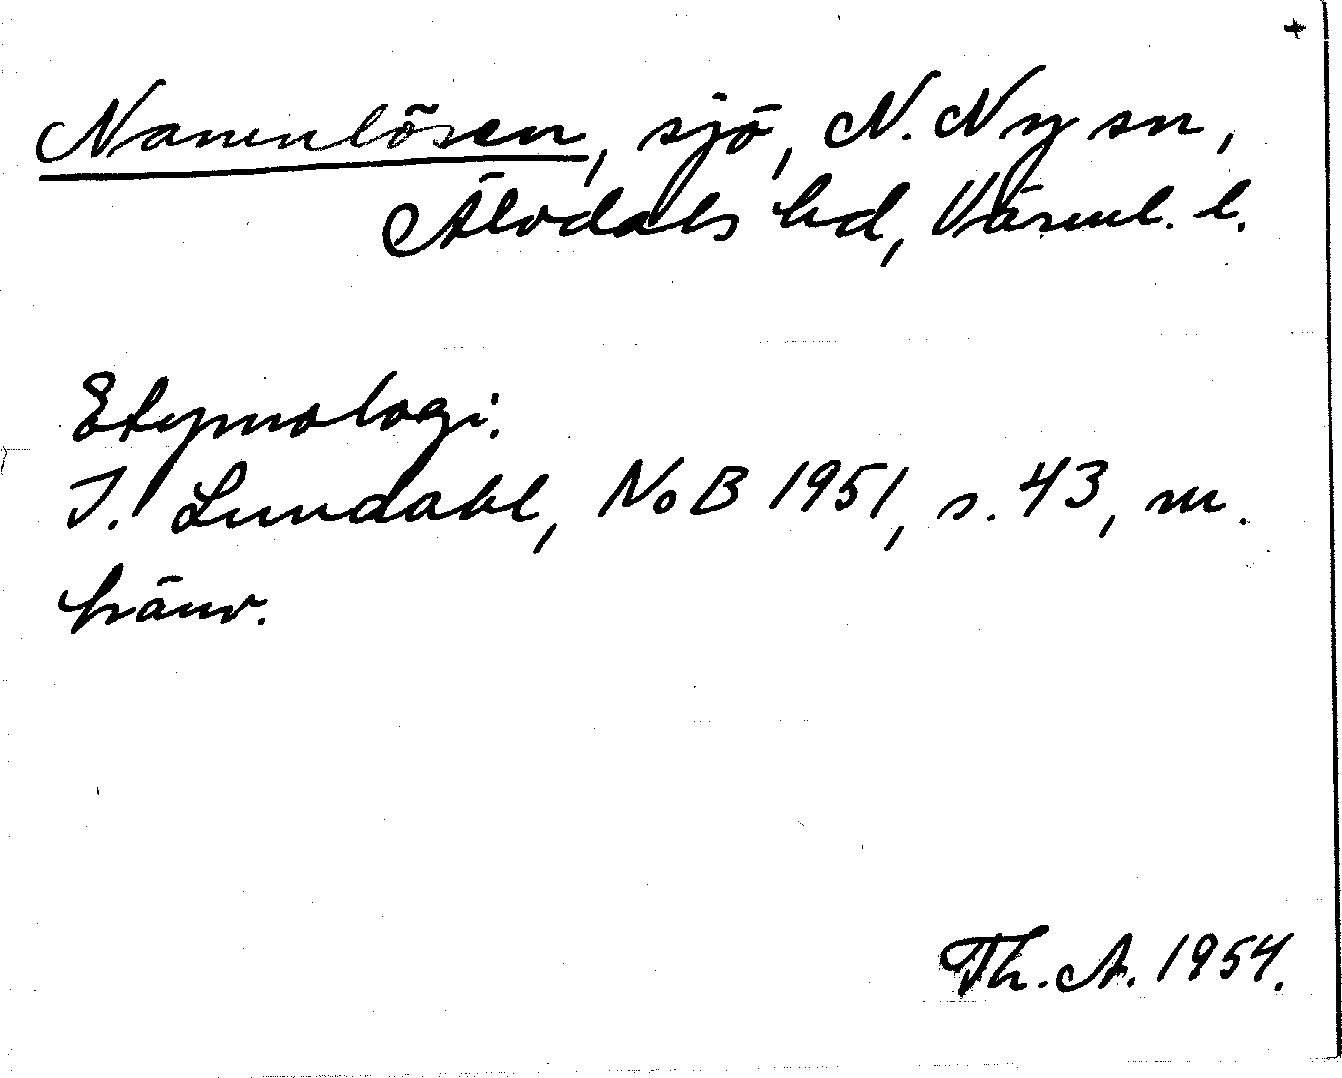 +
Namnlösen, sjö, N. Ny sn,
Älvdals hd, Värml. l.
Etymologi.
I. Lundahl, NoB 1951, s. 43, m.
hänv.
Th. A. 1954.